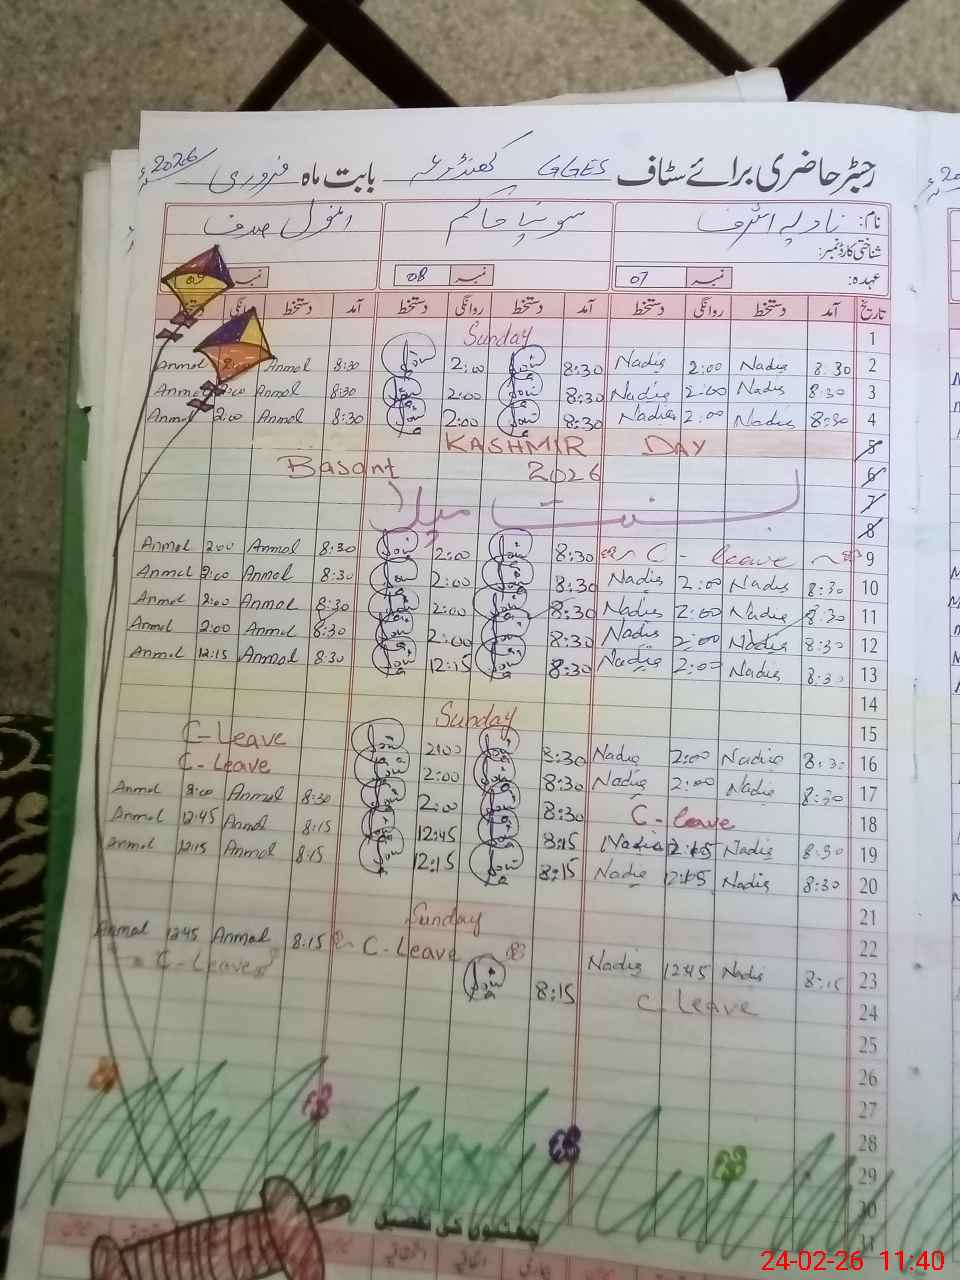 رجسٹر حاضری برائے سٹاف GGES بابت ماہ فروری 2026ء
نام: نادیہ اشرف سونیا حاکم انمول صدف
شناختی کارڈ نمبر:
عہدہ: نمبر 07 نمبر 08 نمبر 09
تاریخ آمد دستخط روانگی دستخط آمد دستخط روانگی دستخط آمد دستخط روانگی دستخط
1 Sunday
2 8:30 Nadia 2:00 Nadia 8:30 2:00 8:30 Anmol 2:00 Anmol
3 8:30 Nadia 2:00 Nadia 8:30 2:00 8:30 Anmol 2:00 Anmol
4 8:30 Nadia 2:00 Nadia 8:30 2:00 8:30 Anmol 2:00 Anmol
5 KASHMIR DAY
6 Basant 2026
7 بسنت میلا
8
9 C - leave 8:30 2:00 8:30 Anmol 2:00 Anmol
10 8:30 Nadia 2:00 Nadia 8:30 2:00 8:30 Anmol 2:00 Anmol
11 8:30 Nadia 2:00 Nadia 8:30 2:00 8:30 Anmol 2:00 Anmol
12 8:30 Nadia 2:00 Nadia 8:30 2:00 8:30 Anmol 2:00 Anmol
13 8:30 Nadia 2:00 Nadia 8:30 12:15 8:30 Anmol 12:15 Anmol
14
15 Sunday
16 8:30 Nadia 2:00 Nadia 8:30 2:00 C-Leave
17 8:30 Nadia 2:00 Nadia 8:30 2:00 C-Leave
18 C-leave 8:30 2:00 8:30 Anmol Anmol
19 8:30 Nadia Nadia 8:15 12:45 8:15 Anmol 12:45 Anmol
20 8:30 Nadia Nadia 8:15 12:15 8:15 Anmol 12:15 Anmol
21
22 Sunday
23 8:15 Nadia 12:45 Nadia C-Leave 8:15 Anmol 12:45 Anmol
24 C-Leave 8:15 C-Leave
25
26
27
28
29
30
31
چھٹیوں کی تفصیل
24-02-26 11:40